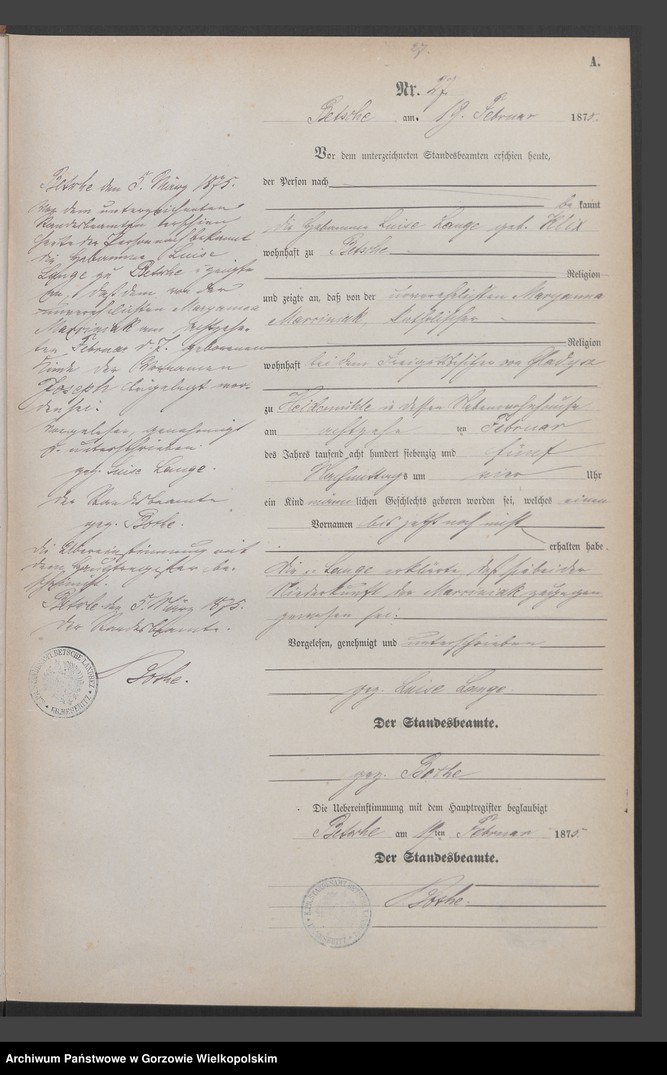 27.
A.
Nr. 27
Betsche am 19. Februar 1875.
Vor dem unterzeichneten Standesbeamten erschien heute,
der Person nach
bekannt
die Hebamme Luise Lange geb. Klix
wohnhaft zu Betsche
Religion
und zeigte an, daß von der unverehelichten Maryanna
Marciniak, katholischer
Religion
wohnhaft bei dem
zu in dessen
am achtzehn ten Februar
des Jahres tausend acht hundert siebenzig und fünf
Nachmittags um vier Uhr
ein Kind männlichen Geschlechts geboren worden sei, welches einen
Vornamen bis jetzt noch nicht
erhalten habe.
Die Lange erklärte daß sie bei der
Niederkunft der Marciniak zugegen
gewesen sei.
Vorgelesen, genehmigt und unterschrieben
gez. Luise Lange.
Der Standesbeamte.
gez. Bothe
Die Uebereinstimmung mit dem Hauptregister beglaubigt
Betsche am 19ten Februar 1875
Der Standesbeamte.
Bothe.
Betsche den 5. März 1875.
Vor dem unterzeichneten
Standesbeamten erschien
heute der Person nach bekannt
die Hebamme Luise
Lange zu Betsche und zeigte
an, daß dem von der
unverehelichten Maryanna
Marciniak am achtzehn
ten Februar d. J. geborenen
Kinde der Vornamen
Joseph beigelegt wor-
den sei.
Vorgelesen, genehmigt
u. unterschrieben
gez. Luise Lange.
Der Standesbeamte
gez. Bothe.
Die Übereinstimmung mit
dem Hauptregister be-
scheinigt.
Betsche den 5. März 1875.
Der Standesbeamte.
Bothe.
Archiwum Państwowe w Gorzowie Wielkopolskim